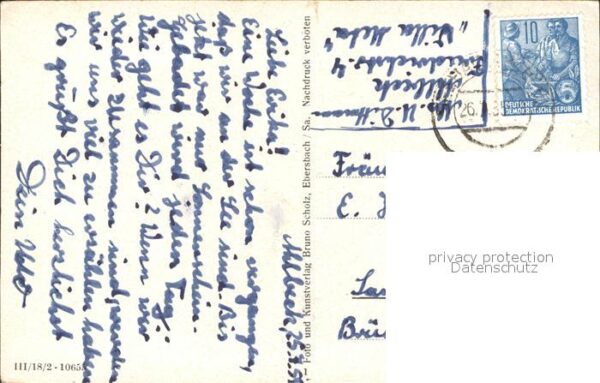 Ahlbeck, 25.
Liebe Erika!
Eine Woche ist schon vergangen,
daß wir an der See sind. Bis
jetzt war nur Sonnenschein.
Gebadet wird jeden Tag.
Wie geht es Dir? Wenn wir
wieder zusammen sind, werden
wir uns viel zu erzählen haben
Es grüßt Dich herzlichst
Dein
Abs. U. Dittmann
Ahlbeck
4
"Villa Meta"
10
5
DEUTSCHE
DEMOKRATISCHE REPUBLIK
26.
Fräu
E.
Brü
privacy protection
Datenschutz
Foto und Kunstverlag Bruno Scholz, Ebersbach / Sa. Nachdruck verboten
III/18/2 - 1065